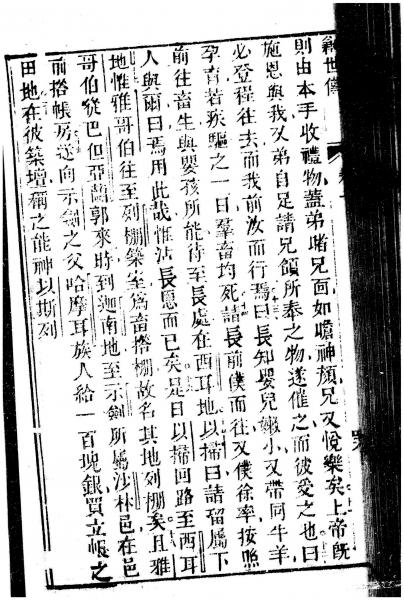 創世傳
則由本手收禮物蓋弟啫兄面如瞻神顏兄又悅樂矣上帝既
施恩與我又弟自足請兄領所奉之物遂催之而彼愛之也曰
必登程往去而我前汝而行焉曰長知嬰兒嫩小又帶同牛羊
孕育若疾驅之一日羣畜均死請長前僕而往又僕徐率按照
前往畜生與嬰孩所能待至長處在西耳地以掃曰請留屬下
人與爾曰焉用此哉惟沾長恩而已矣是日以掃回路至西耳
地惟雅哥伯往至列棚築室為畜搭棚故名其地列棚矣且雅
哥伯從巴但亞蘭郭來時到迦南地至示劍所屬沙林邑在邑
前搭帳房遂向示劍之父哈摩耳族人給一百塊銀買立帳之
田地在彼築壇稱之能神以斯列